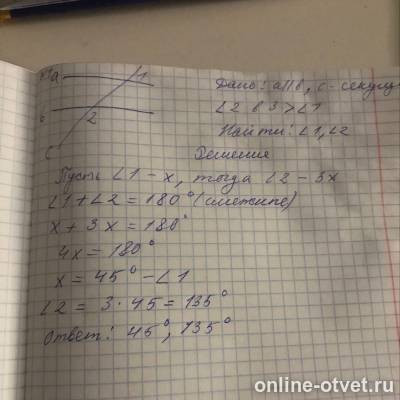 a 1
Дано: a||b, c - секущ
b 2
∠2 в 3 > ∠1
Найти: ∠1, ∠2
c
Решение
Пусть ∠1 - x, тогда ∠2 - 3x
∠1 + ∠2 = 180° (смежные)
x + 3x = 180°
4x = 180°
x = 45° - ∠1
∠2 = 3 · 45 = 135°
Ответ: 45°, 135°
online-otvet.ru